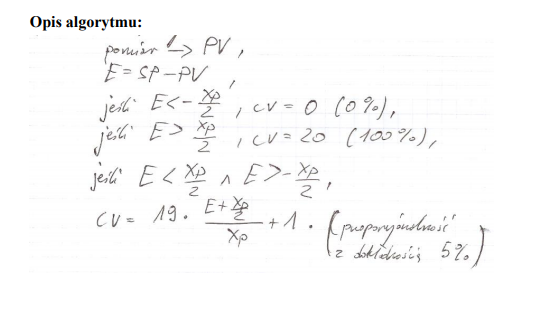 Opis algorytmu:
pomiar ↳ PV,
E = SP - PV,
jeśli E < - Xp/2, CV = 0 (0%),
jeśli E > Xp/2, CV = 20 (100%),
jeśli E < Xp/2 ∧ E > - Xp/2,
CV = 19 · (E + Xp/2)/Xp + 1 . (proporcjonalność
z dokładnością 5%)